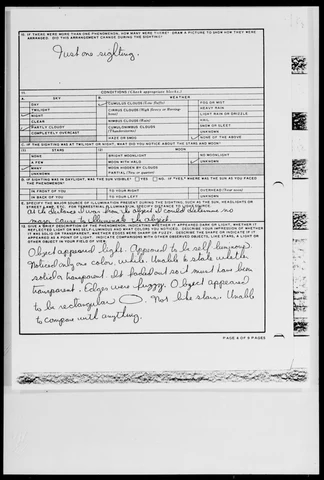 10. IF THERE WERE MORE THAN ONE PHENOMENON, HOW MANY WERE THERE? DRAW A PICTURE TO SHOW HOW THEY WERE
ARRANGED. DID THIS ARRANGEMENT CHANGE DURING THE SIGHTING?
Just one sighting.
CONDITIONS (Check appropriate blocks)
A. SKY
B. WEATHER
DAY
CUMULUS CLOUDS (Low fluffy)
FOG OR MIST
TWILIGHT
HEAVY RAIN
NIGHT
LIGHT RAIN OR DRIZZLE
CLEAR
NIMBUS CLOUDS (Rain)
HAIL
PARTLY CLOUDY
CUMULONIMBUS CLOUDS
SNOW OR SLEET
COMPLETELY OVERCAST
(Thunderstorms)
UNKNOWN
HAZE OR SMOG
NONE OF THE ABOVE
C. IF THE SIGHTING WAS AT TWILIGHT OR NIGHT, WHAT DID YOU NOTICE ABOUT THE STARS AND MOON?
(1) STARS
(2) MOON
NONE
BRIGHT MOONLIGHT
NO MOONLIGHT
A FEW
MOON WITH HALO
UNKNOWN
MANY
MOON HIDDEN BY CLOUDS
UNKNOWN
PARTIAL
D. IF SIGHTING WAS IN DAYLIGHT, WAS THE SUN VISIBLE? YES NO. IF "YES," WHERE WAS THE SUN AS YOU FACED
THE PHENOMENON?
IN FRONT OF YOU
TO YOUR RIGHT
OVERHEAD
IN BACK OF YOU
TO YOUR LEFT
UNKNOWN
E. SPECIFY THE MAJOR SOURCE OF ILLUMINATION PRESENT DURING THE SIGHTING, SUCH AS THE SUN, HEADLIGHTS OR
STREET LAMP, ETC. FOR TERRESTRIAL ILLUMINATION, SPECIFY DISTANCE TO LIGHT SOURCE.
At the distance I was from the object I could determine no
major cause to illuminate the object.
12. GIVE A BRIEF DESCRIPTION OF THE PHENOMENON, INDICATING WHETHER IT APPEARED DARK OR LIGHT, WHETHER IT
REFLECTED LIGHT OR WAS SELF-LUMINOUS AND WHAT COLORS YOU NOTICED. DESCRIBE YOUR IMPRESSION OF WHETHER
IT WAS SOLID OR TRANSPARENT, WHETHER EDGES WERE SHARP OR FUZZY. DESCRIBE THE SHAPE OR INDICATE IF IT
APPEARED AS A POINT OF LIGHT. INDICATE COMPARISONS WITH OTHER OBSERVED OBJECTS, LIKE STARS, A LIGHT OR
OTHER OBJECT IN YOUR FIELD OF VIEW.
Object appeared light. Appeared to be self luminous.
Noticed only one color white. Unable to state whether
solid or transparent. It faded out so it must have been
transparent. Edges were fuzzy. Object appeared
to be rectangular. Not like stars. Unable
to compare with anything.
PAGE 4 OF 9 PAGES